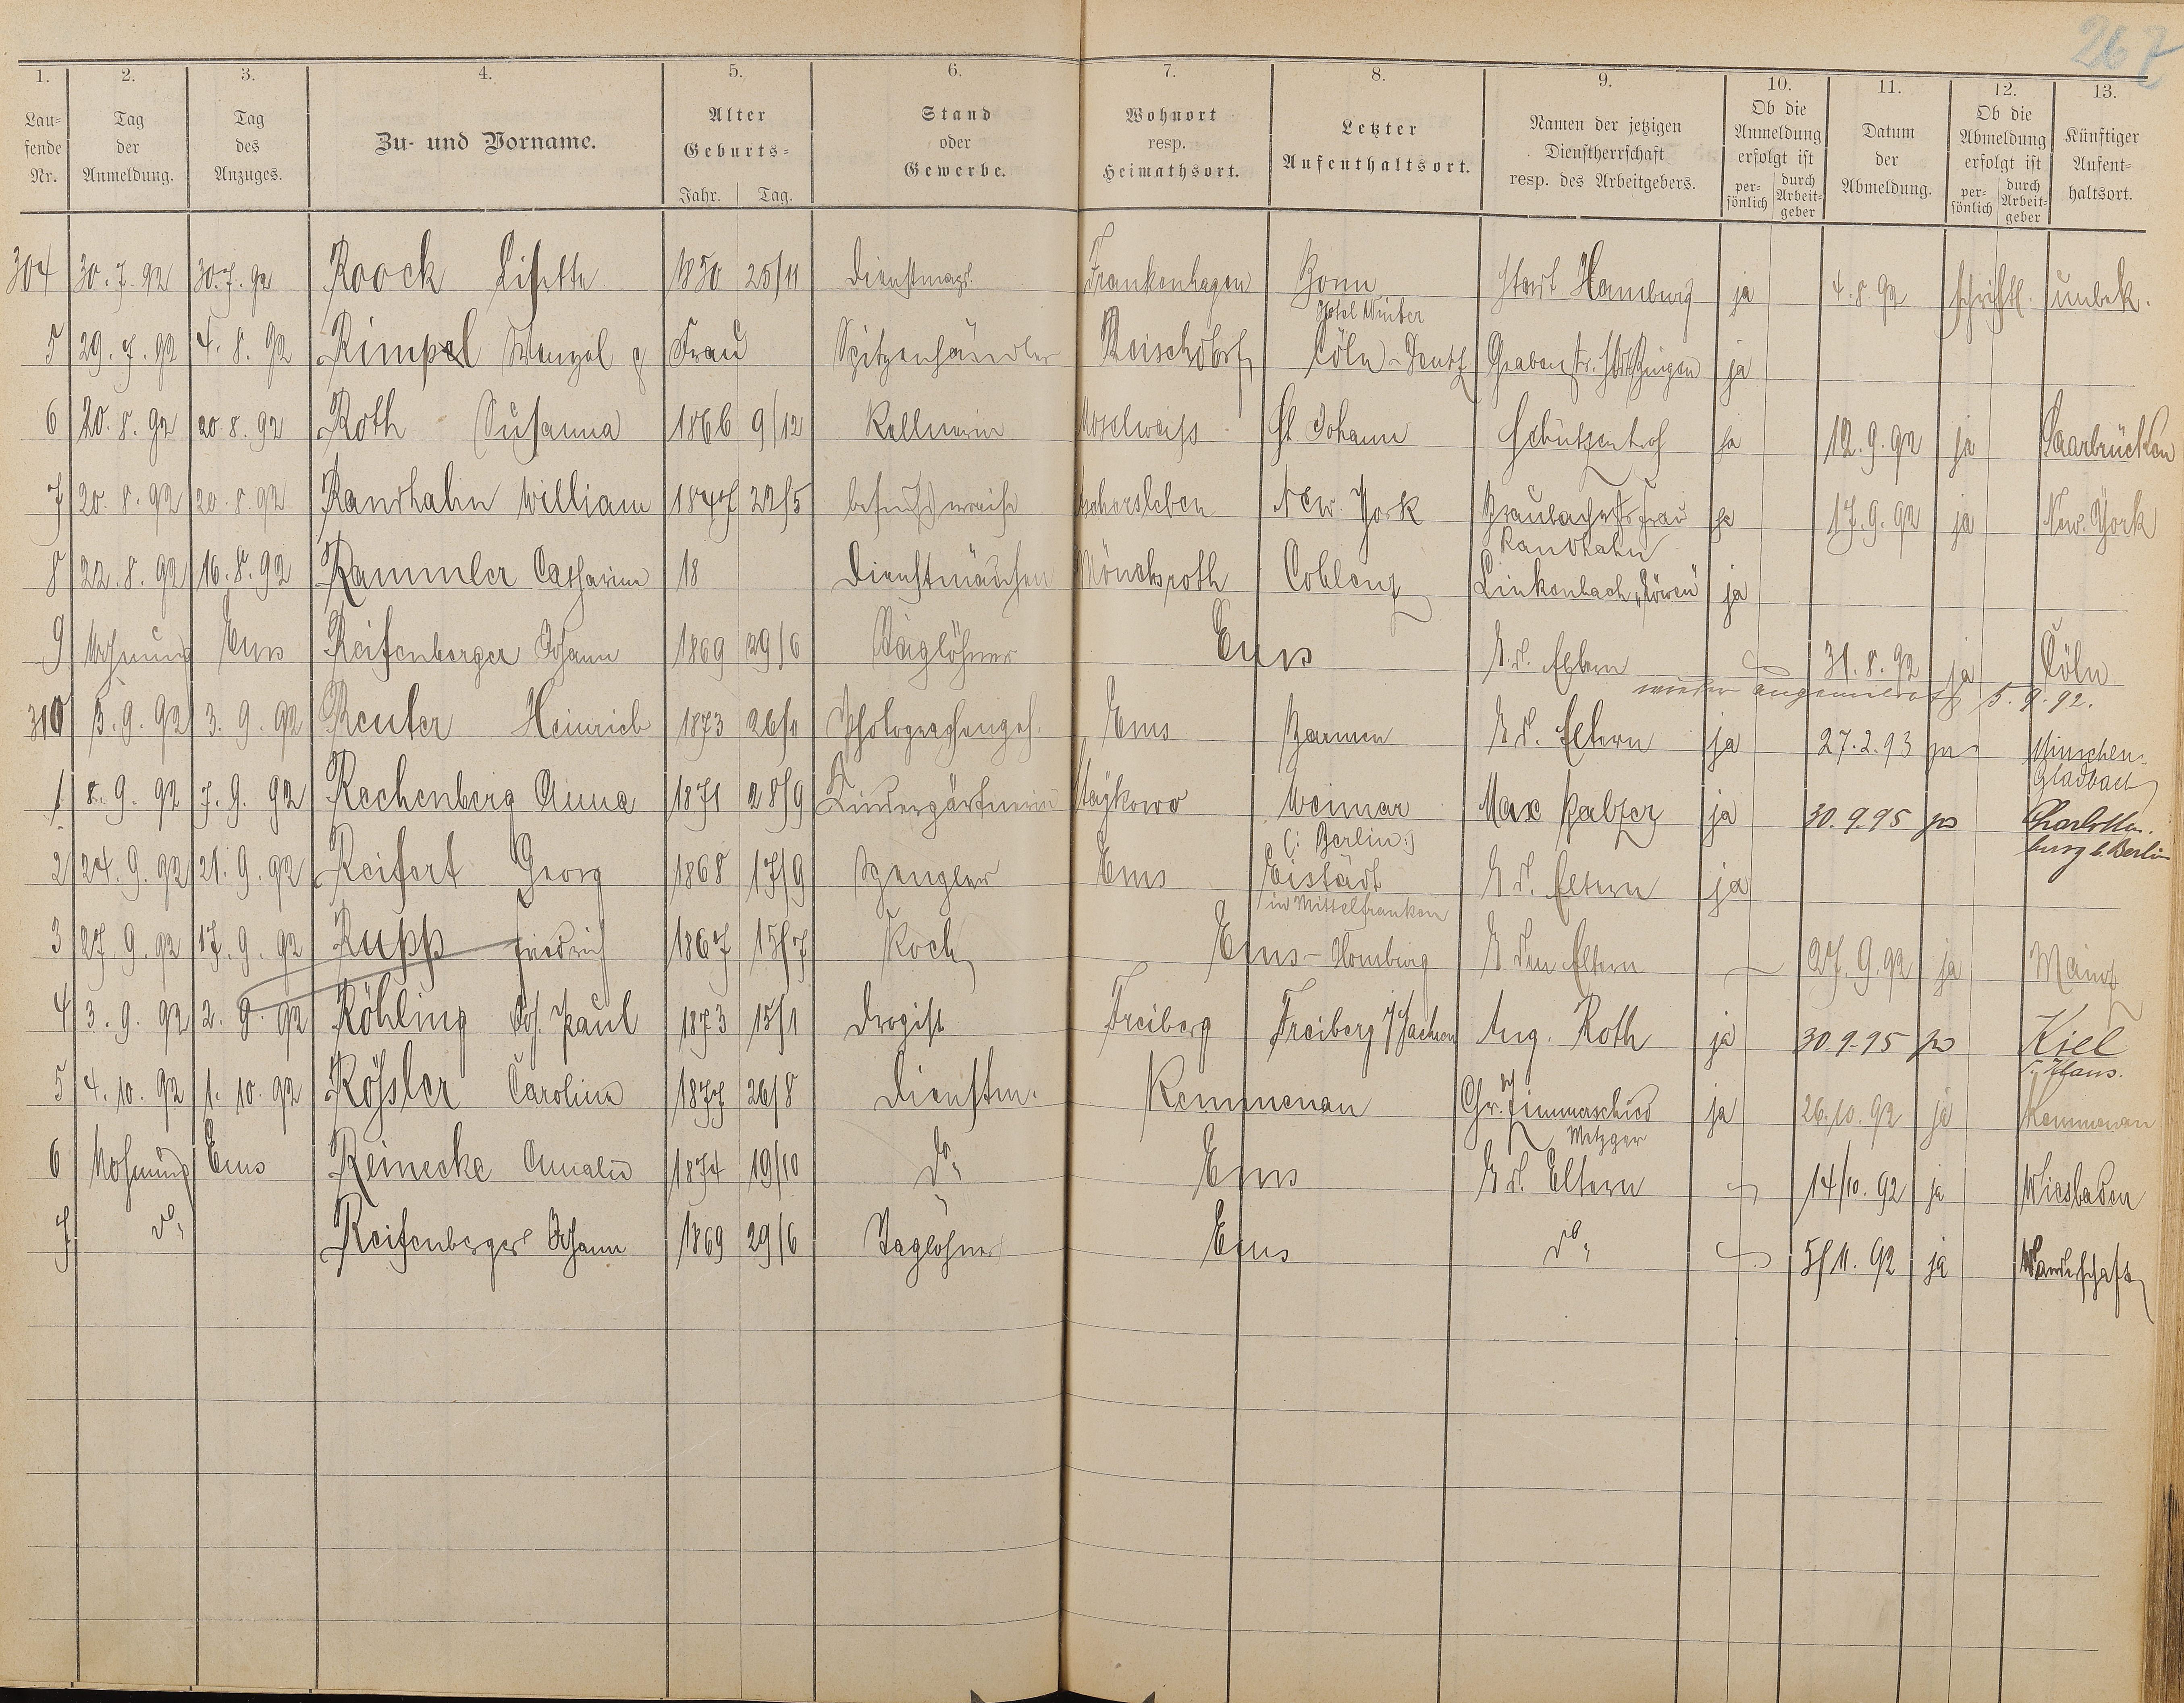 267
1. 2. 3. 4. 5. 6. 7. 8. 9. 10. 11. 12. 13.
Lau- fende Nr. Tag der Anmeldung. Tag des Anzuges. Zu- und Vorname. Alter Geburts- Jahr. Tag. Stand oder Gewerbe. Wohnort resp. Heimathsort. Letzter Aufenthaltsort. Namen der jetzigen Dienstherrschaft resp. des Arbeitgebers. Ob die Anmeldung erfolgt ist per- sönlich durch Arbeit- geber Datum der Abmeldung. Ob die Abmeldung erfolgt ist per- sönlich durch Arbeit- geber Künftiger Aufent- haltsort.
304 30.7.92 30.7.92 Roock Lisette 1850 25/11 Dienstmagd Frankenhagen Bonn Stadt Hamburg ja 4.8.92 schriftl. unbek.
Hotel Winter
5 29.7.92 4.8.92 Rimpel Wenzel & Frau Spitzenhändler Reischdorf Cöln-Deutz Grabenstr. ja
6 20.8.92 20.8.92 Roth Susanna 1866 9/12 Kellnerin Moselweiss St. Johann Schützenhof ja 12.9.92 ja Saarbrücken
7 20.8.92 20.8.92 Randhahn William 1847 22/5 besuchsweise Aschersleben New-York Braubacherstr. Frau ja 17.9.92 ja New-York
Randhahn
8 22.8.92 16.8.92 Rammler Catharine 18 Dienstmädchen Mönchsroth Coblenz Linkenbach „Löwen“ ja
9 Wohnung Ems Reifenberger Johann 1869 29/6 Taglöhner Ems B. d. Eltern 31.8.92 ja Cöln
wieder angemeldet 5.9.92.
310 5.9.92 3.9.92 Reuter Heinrich 1873 26/1 Photographengeh. Ems Barmen B. d. Eltern ja 27.2.93 ja München-
Gladbach
1 8.9.92 7.9.92 Rechenberg Anna 1871 28/9 Kindergärtnerin Weimar Max Balzer ja 30.9.95 ja Charlotten-
(: Berlin :) burg b. Berlin
2 24.9.92 21.9.92 Reifert Georg 1868 17/9 Spengler Ems Eistädt B. d. Eltern ja
in Mittelfranken
3 27.9.92 17.9.92 Rupp Friedrich 1867 15/7 Koch Ems-Homburg B. den Eltern 27.9.92 ja Mainz
4 3.9.92 2.9.92 Röhling Jos. Paul 1873 15/1 Drogist Freiberg Freiberg i/Sachsen Aug. Roth ja 30.9.95 ja Kiel
5 4.10.92 1.10.92 Rößler Caroline 1877 26/8 Dienstm. Kemmenau Chr. Zimmerschied ja 26.10.92 ja Kemmenau
Metzger
6 Wohnung Ems Reinecke Amalie 1874 19/10 do. Ems B. d. Eltern 14/10.92 ja Wiesbaden
7 do. Reifenberger Johann 1869 29/6 Taglöhner Ems do. 5/11.92 ja Wanderschaft